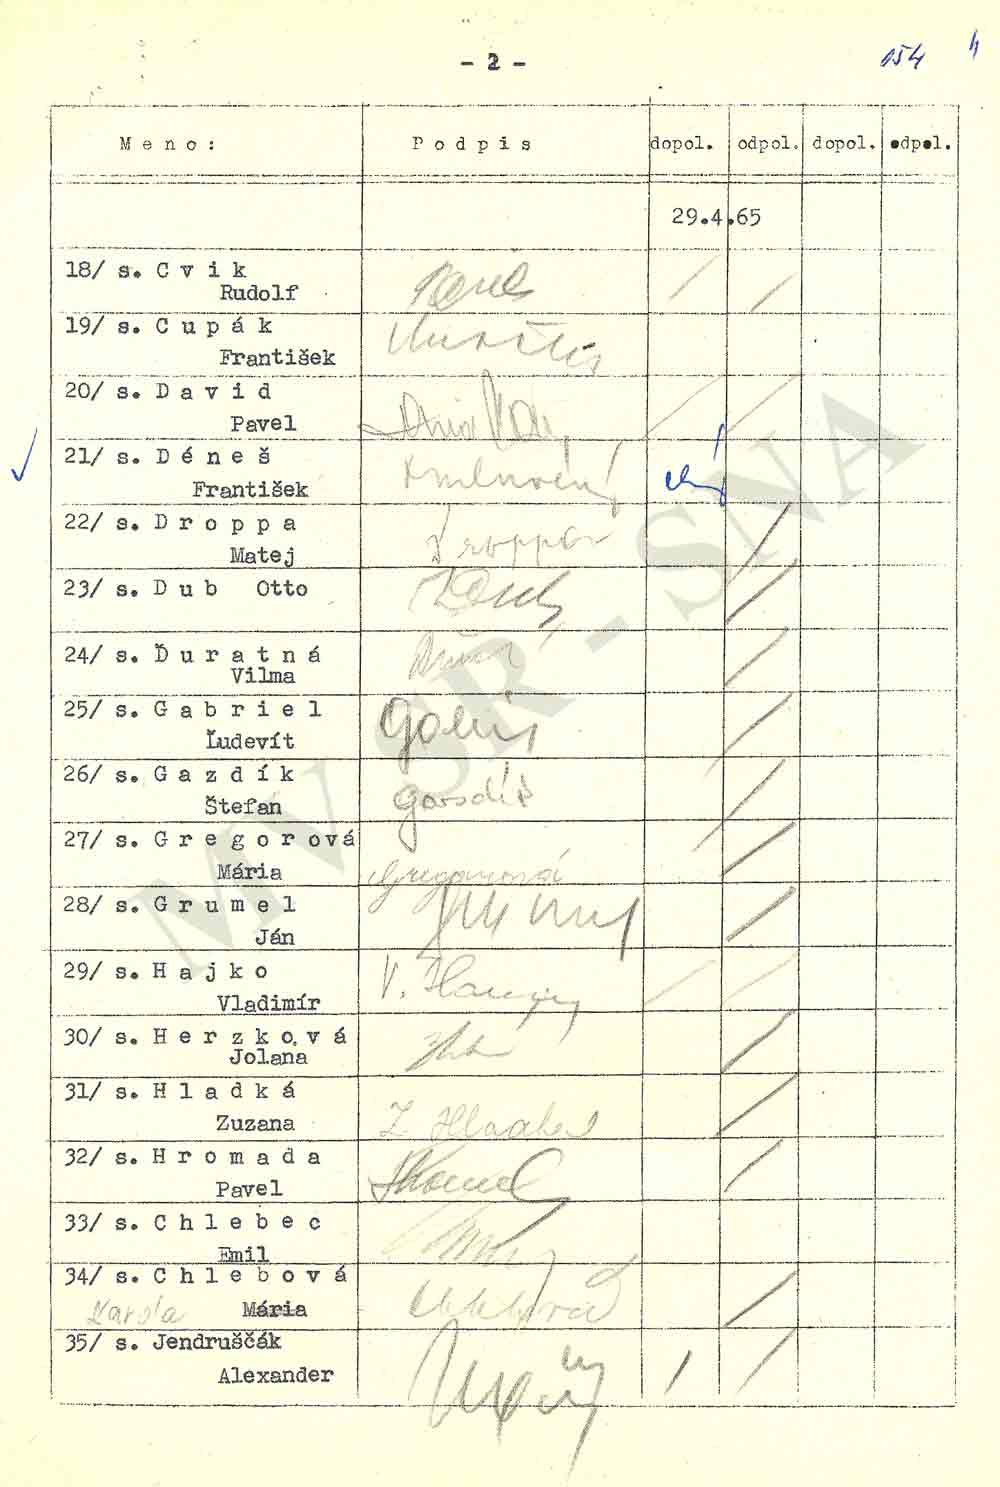 - 2 -
154
Meno: Podpis dopol. odpol. dopol. odpol.
29.4.65
18/ s. Cvik
Rudolf
19/ s. Cupák
František
20/ s. David
Pavel
21/ s. Déneš
František
22/ s. Droppa
Matej Droppa
23/ s. Dub Otto
24/ s. Ďuratná
Vilma
25/ s. Gabriel
Ľudevít
26/ s. Gazdík
Štefan Gazdík
27/ s. Gregorová
Mária Gregorová
28/ s. Grumel
Ján
29/ s. Hajko
Vladimír
30/ s. Herzková
Jolana
31/ s. Hladká
Zuzana
32/ s. Hromada
Pavel
33/ s. Chlebec
Emil
34/ s. Chlebová
Karola Mária
35/ s. Jendruščák
Alexander
MV SR - SNA